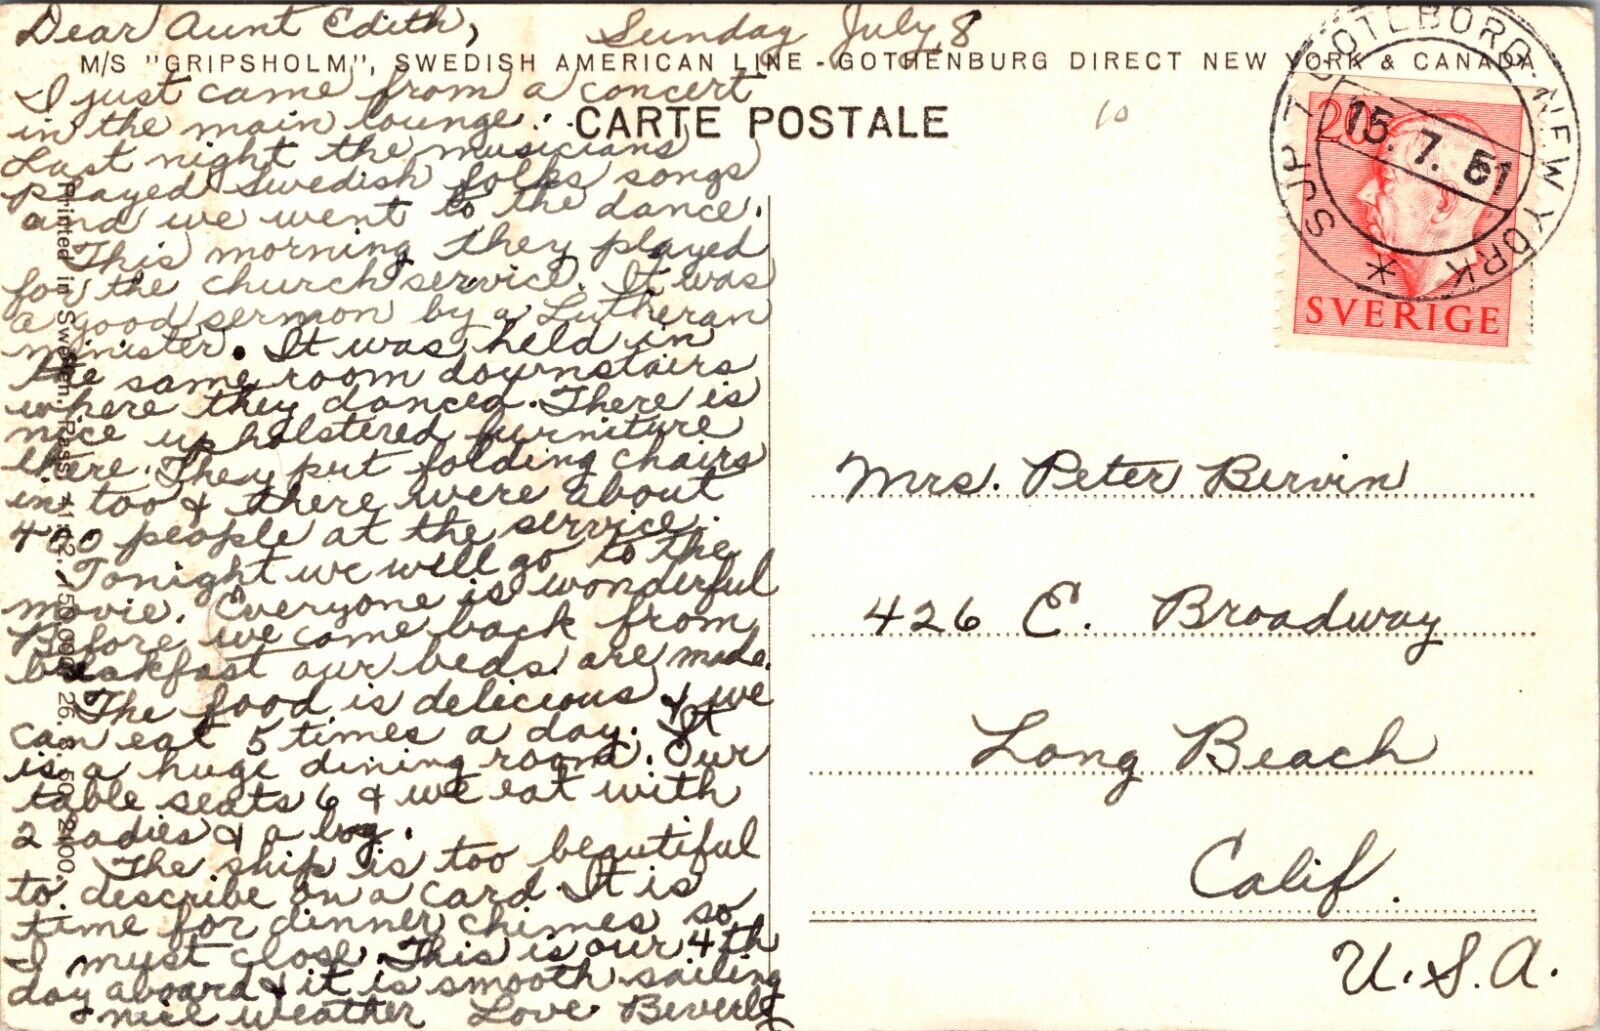 Dear Aunt Edith, Sunday July 8
M/S "GRIPSHOLM", SWEDISH AMERICAN LINE - GOTHENBURG DIRECT NEW YORK & CANADA
I just came from a concert
in the main lounge.
CARTE POSTALE
10
Last night the musicians
played Swedish folks songs
and we went to the dance.
This morning they played
for the church service. It was
a good sermon by a Lutheran
minister. It was held in
the same room downstairs
where they danced. There is
nice upholstered furniture
there. They put folding chairs
in too & there were about
400 people at the service.
Tonight we will go to the
movie. Everyone is wonderful
Before we come back from
breakfast our beds are made.
The food is delicious & we
can eat 5 times a day. It
is a huge dining room. Our
table seats 6 & we eat with
2 ladies & a boy.
The ship is too beautiful
to describe on a card. It is
time for dinner chimes so
I must close. This is our 4th
day aboard & it is smooth sailing
& nice weather Love Beverly
Printed in Sweden.
GÖTEBORG-NEW YORK
15.7.51
20
SVERIGE
Mrs. Peter Bervin
426 E. Broadway
Long Beach
Calif.
U.S.A.